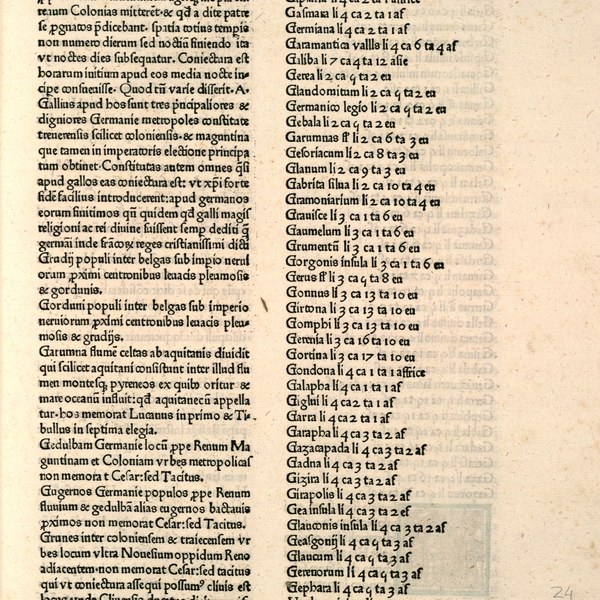 reaum Colonias mitteret· & qđ a dite patre
se ꝓgnatos p̄dicebant· spatia totius tempis
non numero dierum sed noctiū finiendo ita
vt noctes dies subsequatur. Coniectura est
horarum initium apud eos media nocte in-
cipe consueuisse. Quod tn̄ varie disserit. A.
Gallius apud hos sunt tres p̄ncipaliores &
digniores Germanie metropoles constitute
treuerensis scilicet coloniensis· & maguntina
que tamen in imperatoris electione principa
tum obtinet· Constitutas autem omnes q̄si
apud gallos eas coniectura est: vt xp̄i forte
fidē facilius introducerent: apud germanos
eorum finitimos qn̄ quidem qđ galli magis
religioni ac rei diuine fuissent semp dediti q̄
germāi inde frācoꝝ reges cristianissimi dicti
Gradij populi inter belgas sub impio nerui
orum ꝓximi centronibus leuacis pleumosis
& gordunis.
Gorduni populi inter belgas sub imperio
neruiorum ꝓximi centronibus leuacis pleu-
mosis & gradijs.
Garumna flumē celtas ab aquitanis diuidit
qui scilicet aquitani consistunt inter illud flu
men montesq; pyreneos ex quibꝰ oritur &
mare oceanū influit: qđ aquitanecū appella
tur· hoꝝ memorat Lucanus in primo & Ti-
bullus in septima elegia.
Gedulbam Germanie locū ꝓpe Renum Ma
guntinam et Coloniam vrbes metropolicas
non memorat Cesar: sed Tacitus.
Gugernos Germanie populos ꝓpe Renum
fluuium & gedulbā alias eugernos bactauis
ꝓximos non memorat Cesar: sed Tacitus.
Grunes inter coloniensem & traiecensem vr
bes locum vltra Nouesium oppidum Reno
adiacentem· non memorat Cesar: sed tacitus
qui vt coniectura assequi possumꝰ cliuis est
Gasmara li 4 ca 2 ta 1 af
Germiana li 4 ca 2 ta 1 af
Garamantica vallis li 4 ca 6 ta 4 af
Galiba li 7 ca 4 ta 12 asie
Gerea li 2 ca 9 ta 2 eu
Glandomitum li 2 ca 9 ta 2 eu
Germanico legio li 2 ca 9 ta 2 eu
Gebala li 2 ca 9 ta 2 eu
Garumnas fl' li 2 ca 6 ta 3 eu
Gesoriacum li 2 ca 8 ta 3 eu
Glanum li 2 ca 9 ta 3 eu
Gabrita silua li 2 ca 10 ta 4 eu
Gramoniarium li 2 ca 10 ta 4 eu
Grauisce li 3 ca 1 ta 6 eu
Gaumelum li 3 ca 1 ta 6 eu
Grumentū li 3 ca 1 ta 6 eu
Gorgonis insula li 3 ca 1 ta 6 eu
Gerus fl' li 3 ca 9 ta 8 eu
Gonnus li 3 ca 13 ta 10 eu
Girtona li 3 ca 13 ta 10 eu
Gomphi li 3 ca 13 ta 10 eu
Gerenia li 3 ca 16 ta 10 eu
Gortina li 3 ca 17 ta 10 eu
Gondona li 4 ca 1 ta 1 affrice
Galapha li 4 ca 1 ta 1 af
Giglui li 4 ca 2 ta 1 af
Garra li 4 ca 2 ta 1 af
Garapha li 4 ca 3 ta 2 af
Gazacapada li 4 ca 3 ta 2 af
Gadna li 4 ca 3 ta 2 af
Gizira li 4 ca 3 ta 2 af
Girapolis li 4 ca 3 ta 2 af
Gea insula li 4 ca 3 ta 2 ef
Glauconis insula li 4 ca 3 ta 2 af
Geasgonij li 4 ca 9 ta 3 af
Glaucum li 4 ca 9 ta 3 af
Gerenorum li 4 ca 9 ta 3 af
Gephara li 4 ca 9 ta 3 af
24